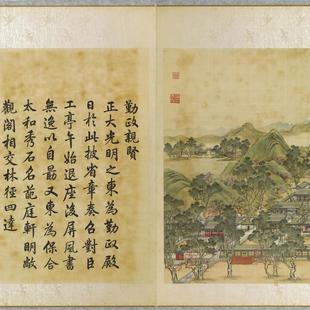 勤政親賢
正大光明之東為勤政殿
日於此披省章奏召對臣
工亭午始退座後屏風書
無逸以自勗又東為保合
太和秀石名葩庭軒明敞
觀閣相交林徑四達